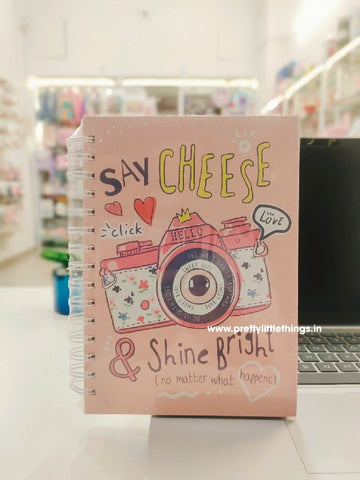 SAY CHEESE
click
HELLO
LOVE
www.prettylittlethings.in
& Shine Bright
(no matter what happens)